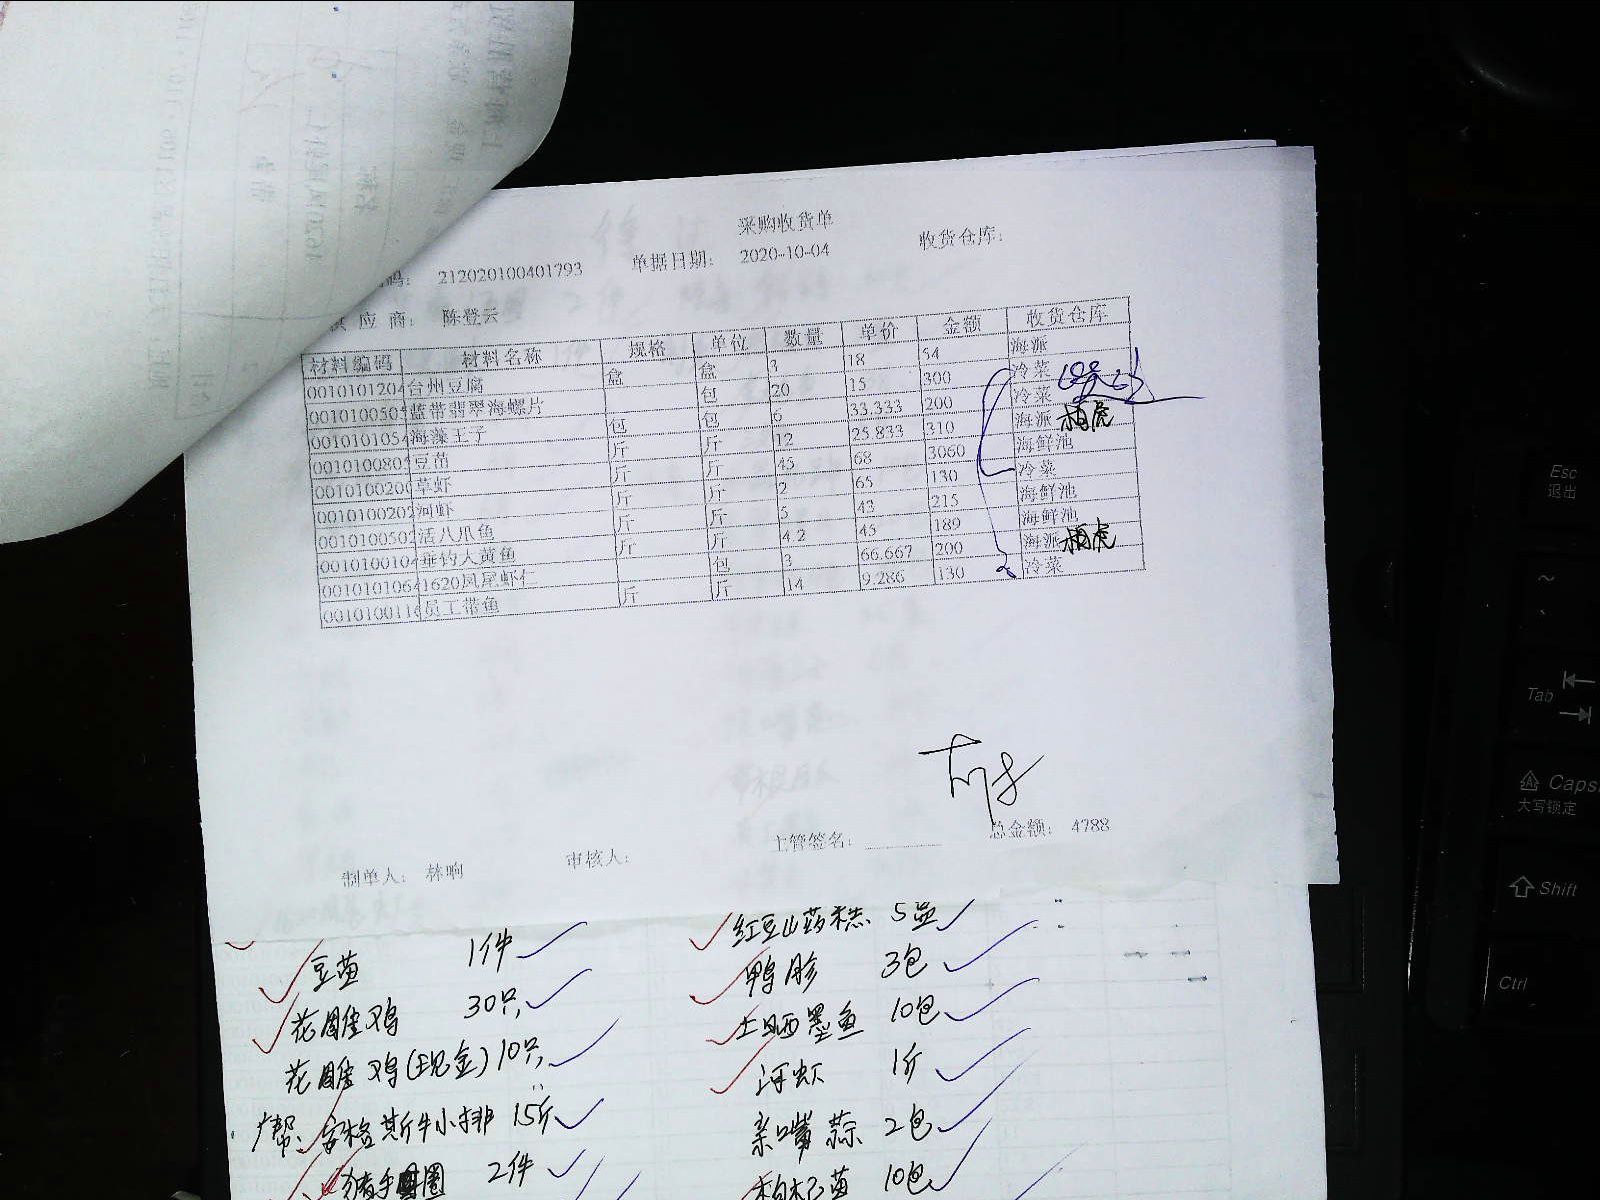 采购收货单
码: 212020100401793 单据日期: 2020-10-04 收货仓库:
供 应 商: 陈登云
材料编码 材料名称 规格 单位 数量 单价 金额 收货仓库
0010101204 台州豆腐 盒 盒 3 18 54 海派
0010100505 蓝带翡翠海螺片 包 20 15 300 冷菜
0010101054 海藻王子 包 包 6 33.333 200 冷菜
0010100805 豆苗 斤 斤 12 25.833 310 海派 柏虎
0010100200 草虾 斤 斤 45 68 3060 海鲜池
0010100202 河虾 斤 斤 2 65 130 冷菜
0010100502 活八爪鱼 斤 斤 5 43 215 海鲜池
0010100104 垂钓大黄鱼 斤 斤 4.2 45 189 海鲜池
0010101064 1620凤尾虾仁 包 3 66.667 200 海派 柏虎
0010100118 员工带鱼 斤 斤 14 9.286 130 冷菜
主管签名: 总金额: 4788
制单人: 林响 审核人:
红豆山药糕 5盒
豆苗 1件 鸭胗 3包
花雕鸡 30只 土晒墨鱼 10包
花雕鸡(现金) 10只 河虾 1斤
安格斯牛小排 15斤 亲嘴蒜 2包
猪手圈 2件 枸杞苗 10包
Esc
退出
~
Tab
Caps
大写锁定
Shift
Ctrl